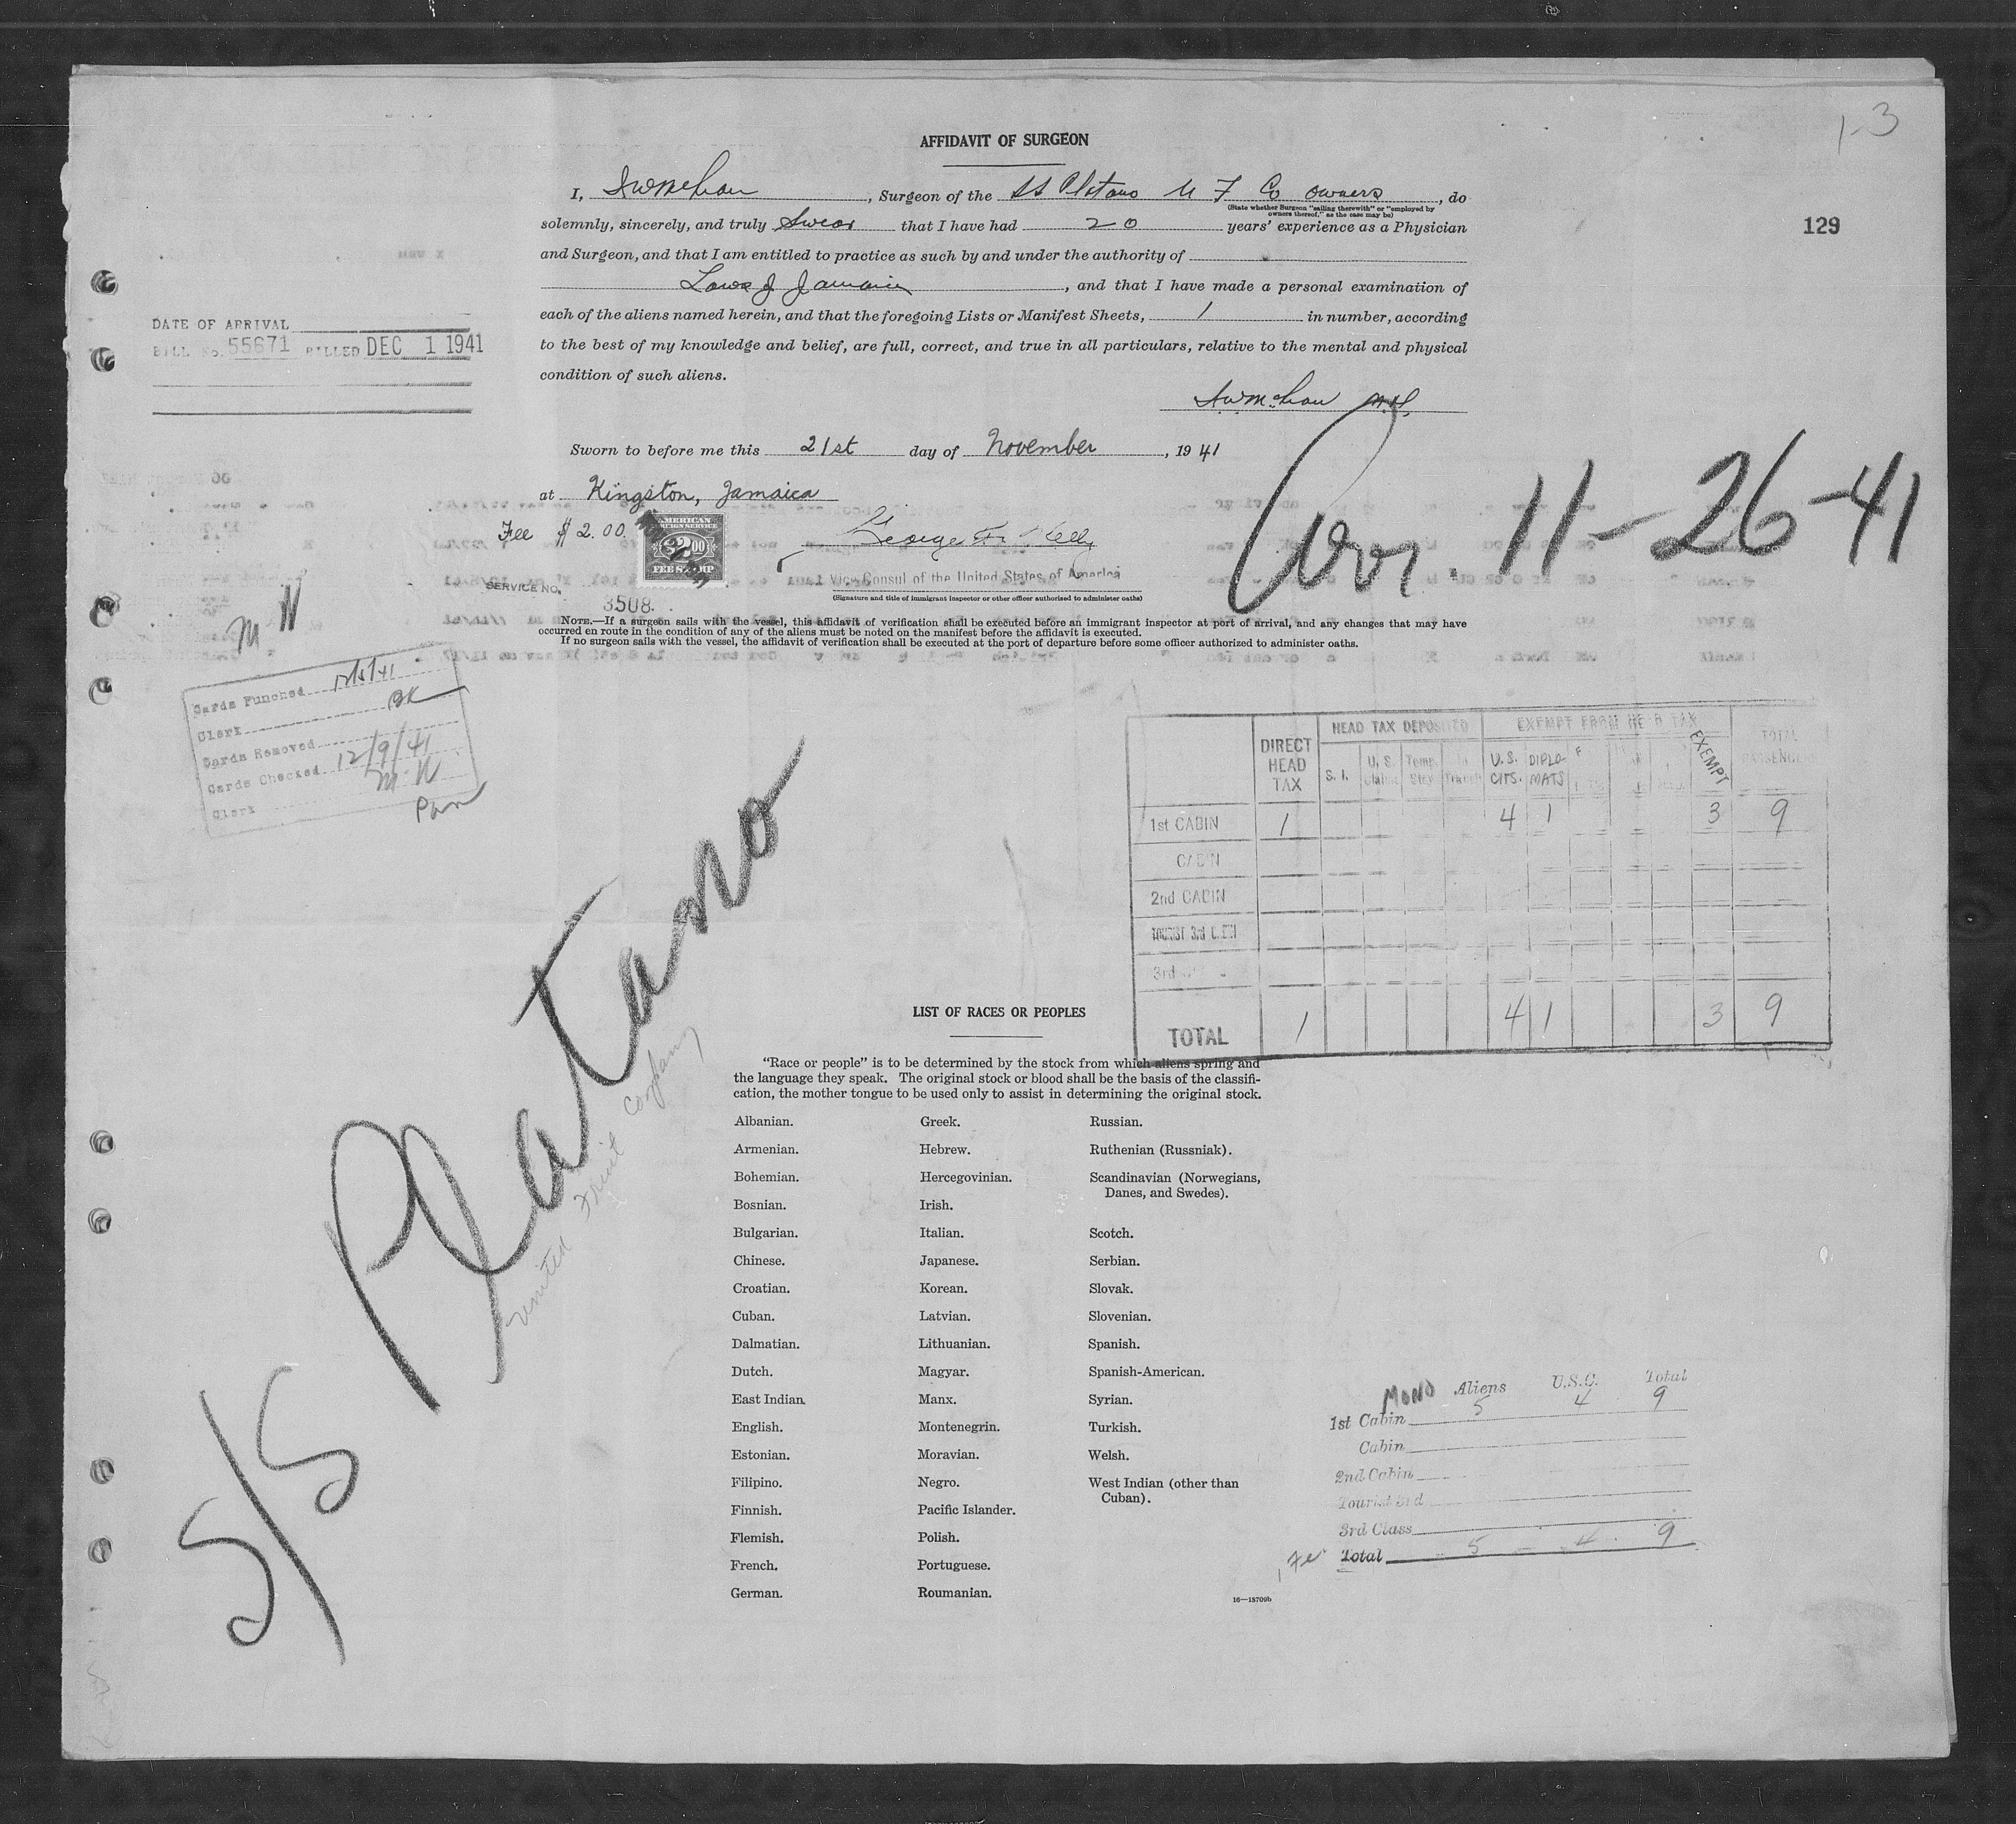 1-3
AFFIDAVIT OF SURGEON
I, , Surgeon of the SS Platano U F Co owners, do
(State whether Surgeon "sailing therewith" or "employed by owners thereof," as the case may be)
solemnly, sincerely, and truly Swear that I have had 20 years' experience as a Physician
129
and Surgeon, and that I am entitled to practice as such by and under the authority of
Laws of Jamaica, and that I have made a personal examination of
each of the aliens named herein, and that the foregoing Lists or Manifest Sheets, 1 in number, according
to the best of my knowledge and belief, are full, correct, and true in all particulars, relative to the mental and physical
condition of such aliens.
DATE OF ARRIVAL
BILL No. 55671 BILLED DEC 1 1941
M.D.
Sworn to before me this 21st day of November, 1941
at Kingston, Jamaica
Arr. 11-26-41
Fee $2.00.
AMERICAN
FOREIGN SERVICE
$2.00
FEE STAMP
George F. Kelly
Vice Consul of the United States of America
(Signature and title of immigrant inspector or other officer authorized to administer oaths)
SERVICE NO.
3508
NOTE.—If a surgeon sails with the vessel, this affidavit of verification shall be executed before an immigrant inspector at port of arrival, and any changes that may have
occurred en route in the condition of any of the aliens must be noted on the manifest before the affidavit is executed.
If no surgeon sails with the vessel, the affidavit of verification shall be executed at the port of departure before some officer authorized to administer oaths.
Cards Punched 12/5/41
Clerk
Cards Removed
Cards Checked 12/9/41
Clerk
DIRECT HEAD TAX HEAD TAX DEPOSITED EXEMPT FROM HEAD TAX TOTAL PASSENGERS
S. I. U. S. Temp. Stay U.S. CITS. DIPLOMATS EXEMPT
1st CABIN 1 4 1 3 9
CABIN
2nd CABIN
TOURIST 3rd CABIN
3rd
TOTAL 1 4 1 3 9
S/S Platano
United Fruit Company
LIST OF RACES OR PEOPLES
"Race or people" is to be determined by the stock from which aliens spring and
the language they speak. The original stock or blood shall be the basis of the classifi-
cation, the mother tongue to be used only to assist in determining the original stock.
Albanian. Greek. Russian.
Armenian. Hebrew. Ruthenian (Russniak).
Bohemian. Hercegovinian. Scandinavian (Norwegians,
Danes, and Swedes).
Bosnian. Irish.
Bulgarian. Italian. Scotch.
Chinese. Japanese. Serbian.
Croatian. Korean. Slovak.
Cuban. Latvian. Slovenian.
Dalmatian. Lithuanian. Spanish.
Dutch. Magyar. Spanish-American.
East Indian. Manx. Syrian.
English. Montenegrin. Turkish.
Estonian. Moravian. Welsh.
Filipino. Negro. West Indian (other than
Cuban).
Finnish. Pacific Islander.
Flemish. Polish.
French. Portuguese.
German. Roumanian.
16—18709b
MONO Aliens U.S.C. Total
1st Cabin 5 4 9
Cabin
2nd Cabin
Tourist 3rd
3rd Class
Total 5 4 9